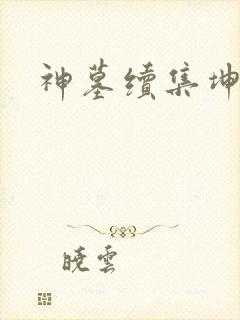 神墓續集坤
曉雲